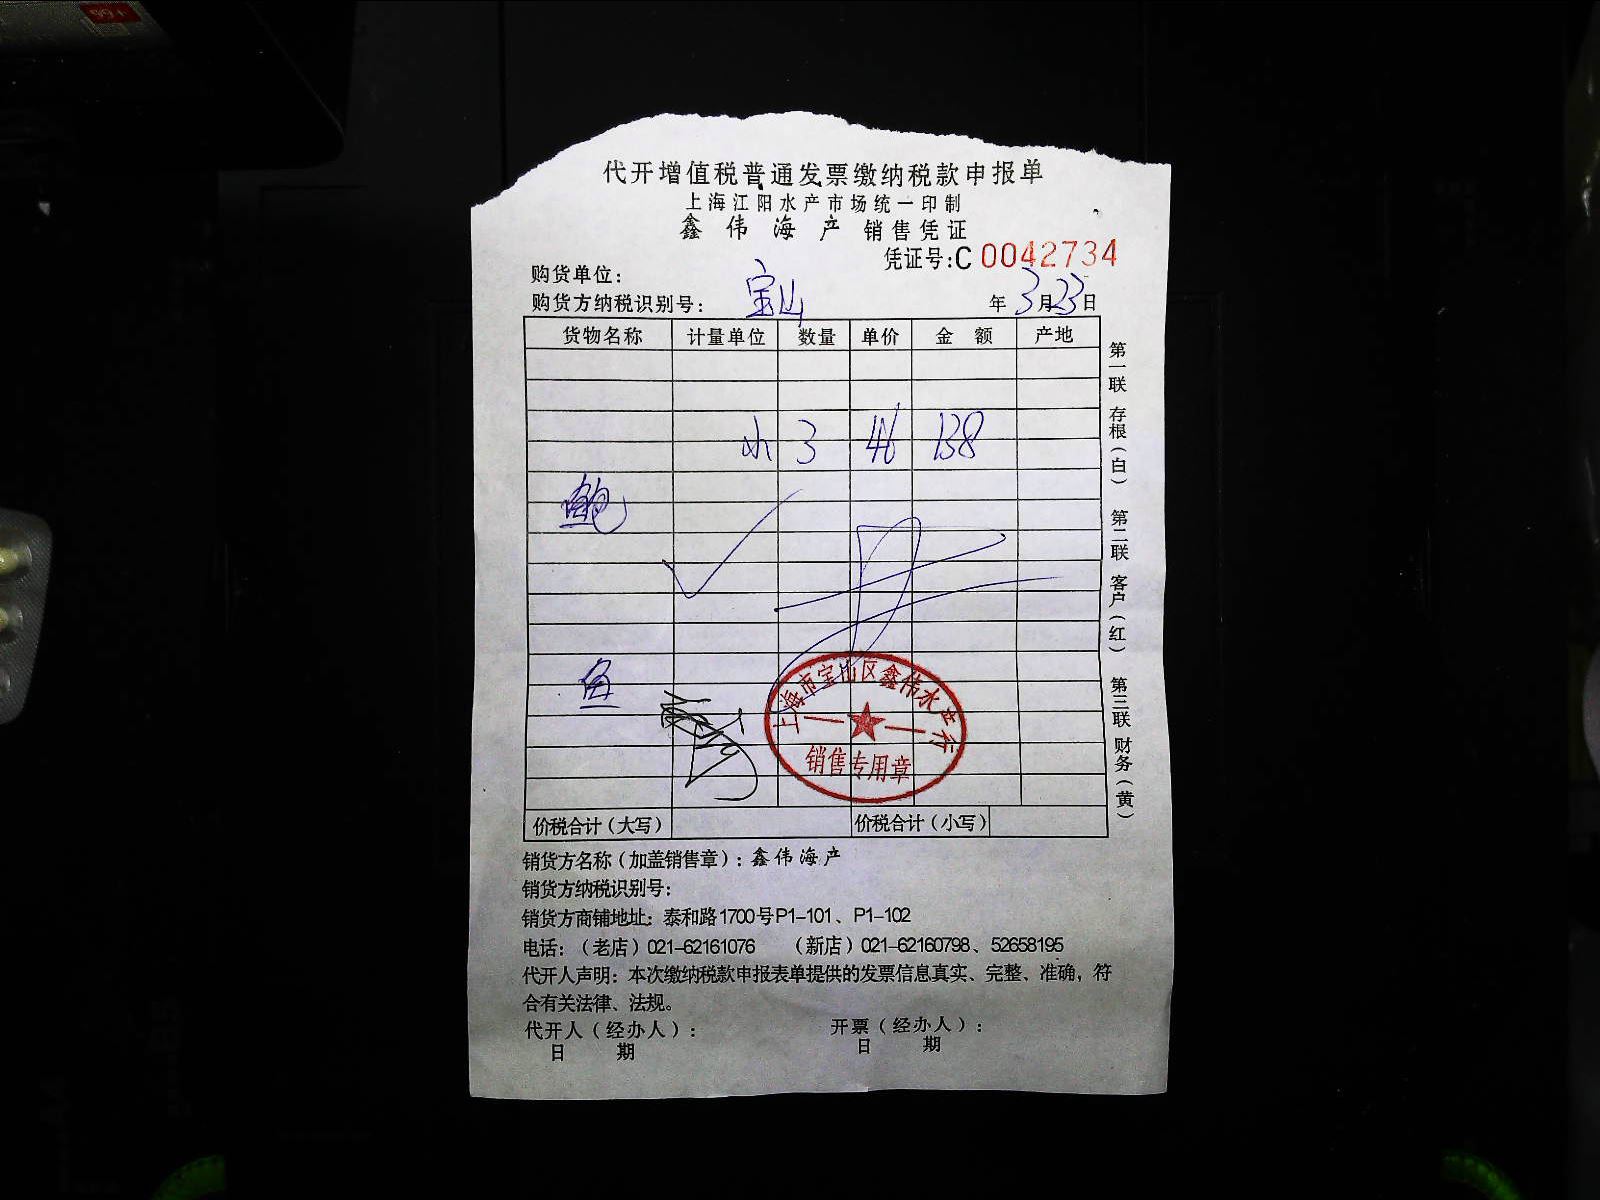 99+
代开增值税普通发票缴纳税款申报单
上海江阳水产市场统一印制
鑫伟海产 销售凭证
凭证号:C 0042734
购货单位:
购货方纳税识别号: 宝山 年 3月23日
货物名称 计量单位 数量 单价 金额 产地
小 3 46 138
鲍
鱼
价税合计(大写) 价税合计(小写)
上海市宝山区鑫伟水产行
销售专用章
第一联 存根(白)
第二联 客户(红)
第三联 财务(黄)
销货方名称(加盖销售章): 鑫伟海产
销货方纳税识别号:
销货方商铺地址: 泰和路1700号P1-101、P1-102
电话:(老店)021-62161076 (新店)021-62160798、52658195
代开人声明: 本次缴纳税款申报表单提供的发票信息真实、完整、准确,符
合有关法律、法规。
代开人(经办人): 开票(经办人):
日 期 日 期